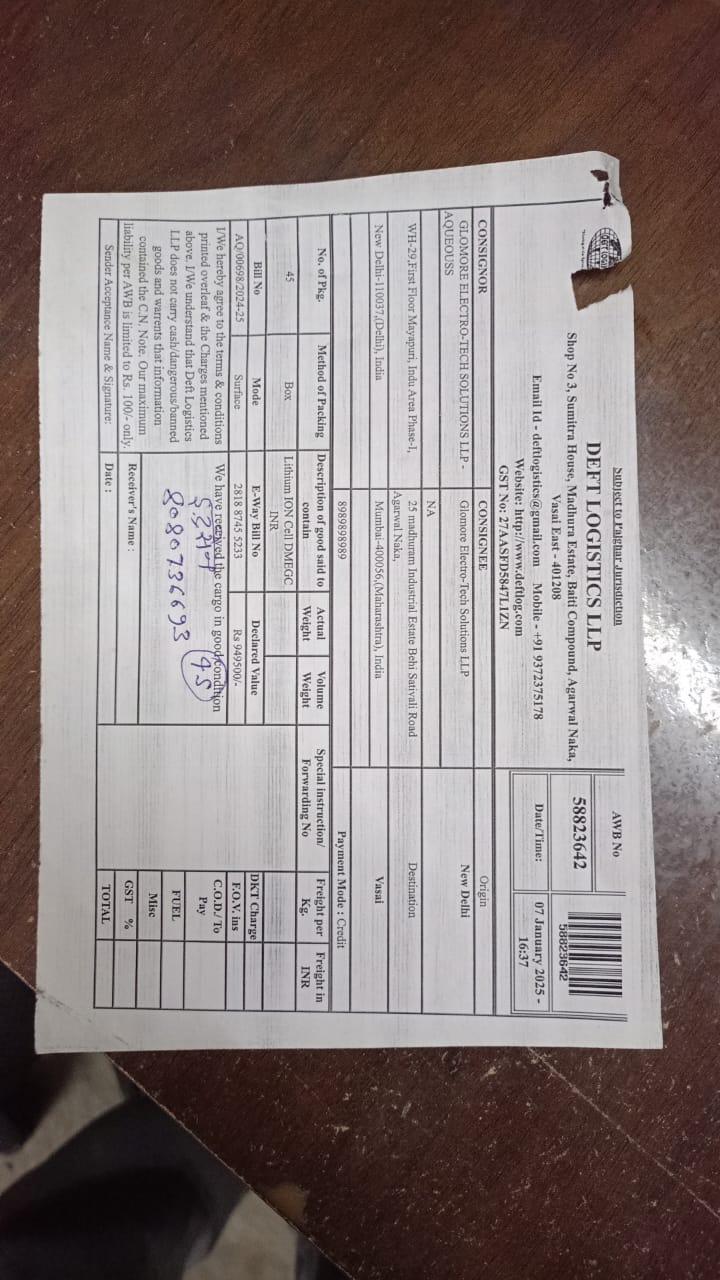 Subject to Palghar Jurisdiction
DEFT LOGISTICS LLP
Shop No 3, Sumitra House, Madhura Estate, Baiti Compound, Agarwal Naka,
Vasai East - 401208
Email Id - deftlogistics@gmail.com Mobile - +91 9372375178
Website: http://www.deftlog.com
GST No: 27AASFD5847L1ZN
AWB No
58823642
58823642
Date/Time:
07 January 2025 -
16:37
CONSIGNOR
CONSIGNEE
Origin
GLOMORE ELECTRO-TECH SOLUTIONS LLP -
AQUEOUSS
Glomore Electro-Tech Solutions LLP
New Delhi
NA
WH-29,First Floor Mayapuri, Indu Area Phase-I,
25 madhuram Industrial Estate Behi Sativali Road
Agarwal Naka,
Destination
New Delhi-110037,(Delhi), India
Mumbai-400056,(Maharashtra), India
Vasai
8989898989
Payment Mode : Credit
No. of Pkg.
Method of Packing
Description of good said to
contain
Actual
Weight
Volume
Weight
Special instruction/
Forwarding No
Freight per
Kg.
Freight in
INR
45
Box
Lithium ION Cell DMEGC
INR
Bill No
Mode
E-Way Bill No
Declared Value
DKT Charge
AQ/00698/2024-25
Surface
2818 8745 5233
Rs 949500/-
F.O.V. ins
I/We hereby agree to the terms & conditions
printed overleaf & the Charges mentioned
above. I/We understand that Deft Logistics
LLP does not carry cash/dangerous/banned
goods and warrents that information
contained the C.N. Note. Our maximum
liability per AWB is limited to Rs. 100/- only.
We have received the cargo in good condition
45
8080736693
C.O.D./ To
Pay
FUEL
Misc
Receiver's Name :
GST %
Sender Acceptance Name & Signature:
Date :
TOTAL